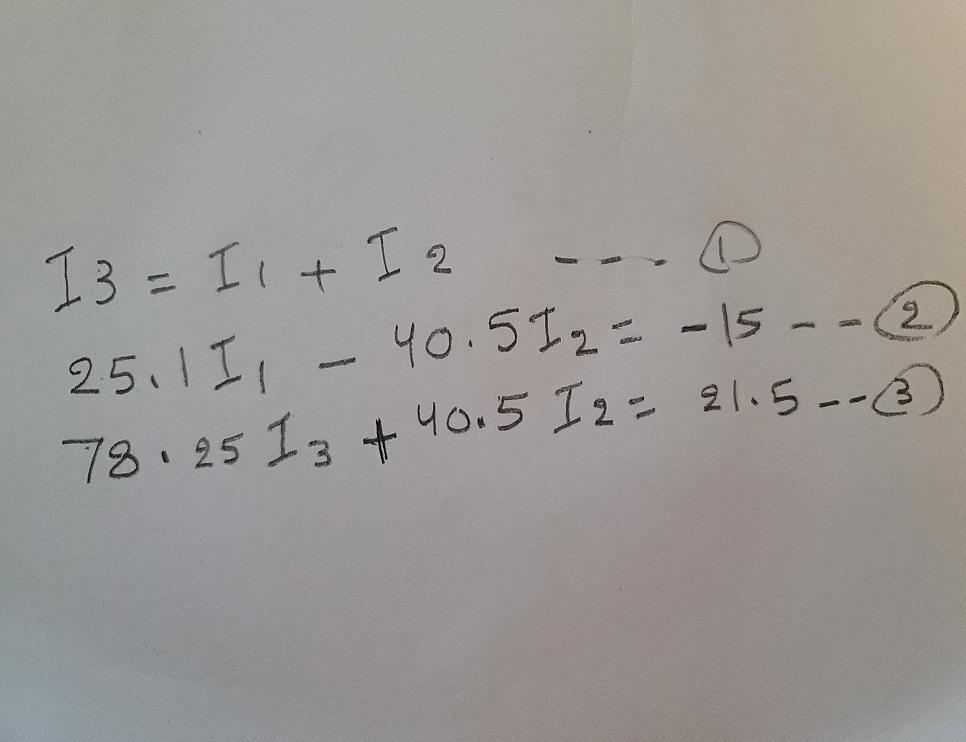 I3 = I1 + I2 ---- ①
25.1 I1 - 40.5 I2 = -15 -- ②
78.25 I3 + 40.5 I2 = 21.5 -- ③